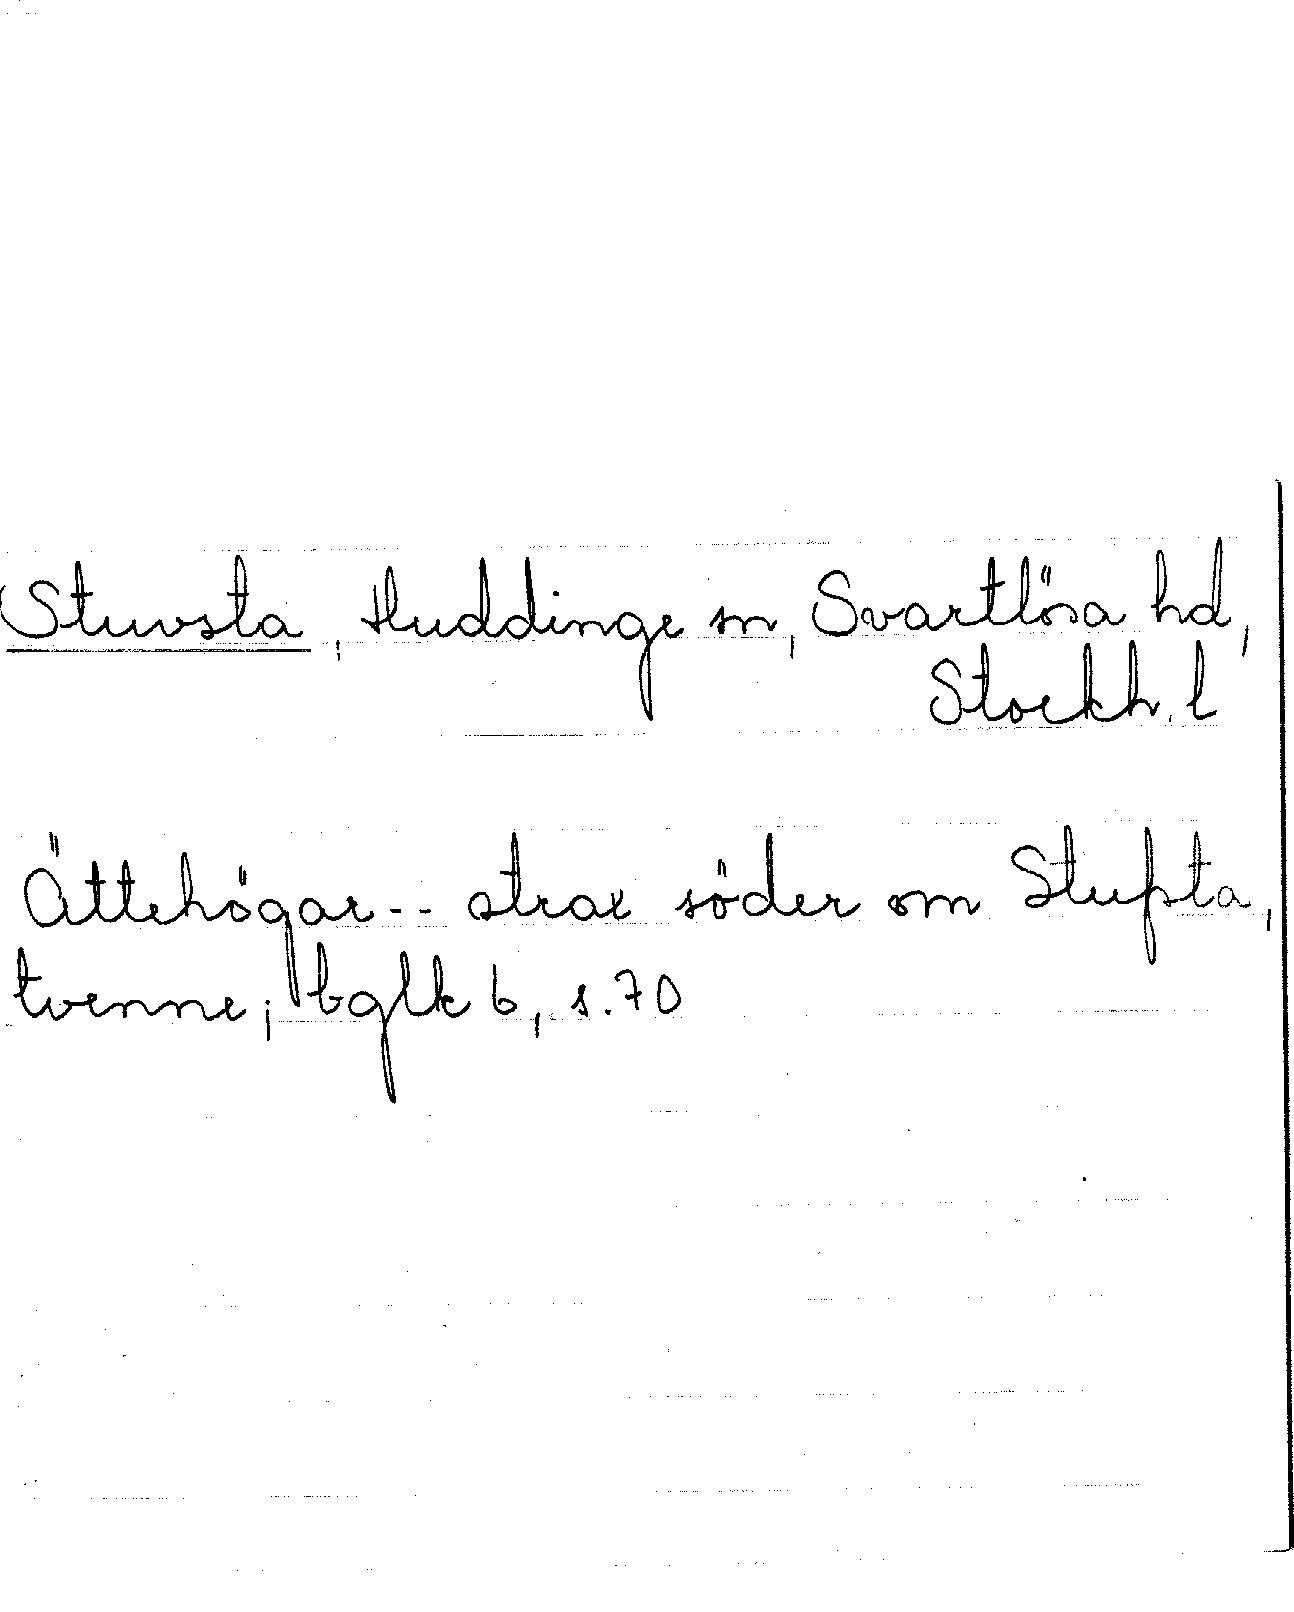 Stuvsta, Huddinge sn, Svartlösa hd,
Stockh. l
Ättehögar -- strax söder om Stufsta,
tvenne; bglk 6, s. 70